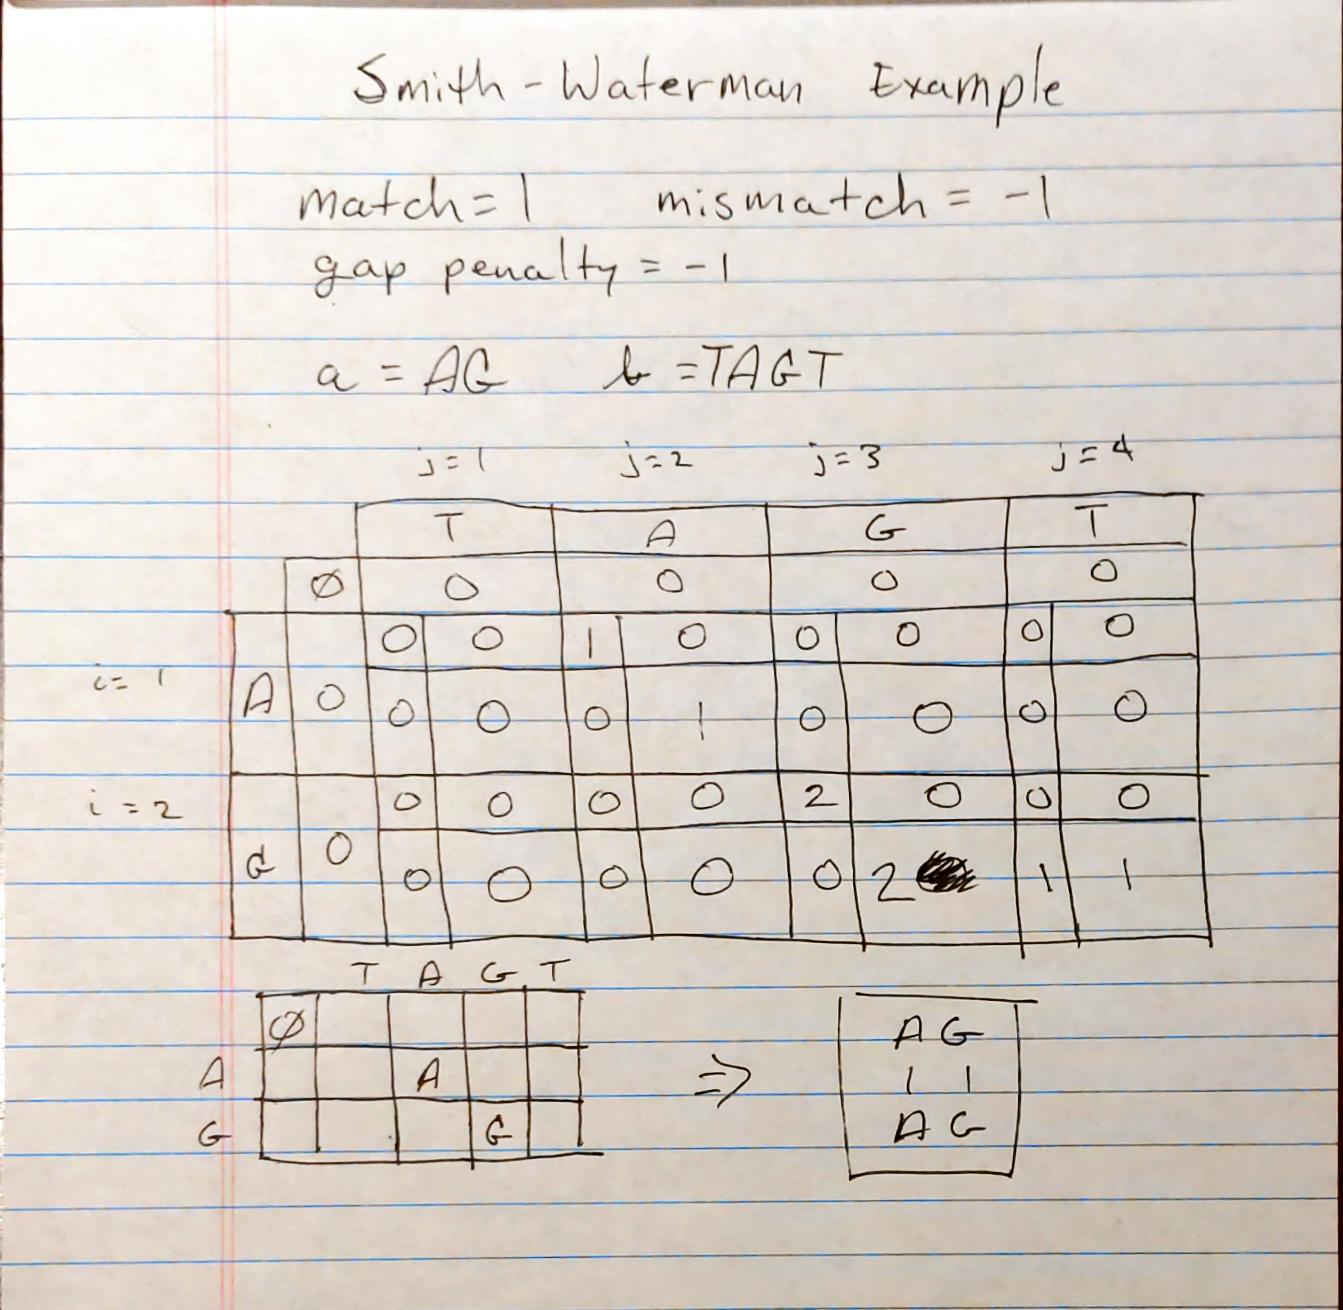 Smith-Waterman Example
match=1 mismatch = -1
gap penalty = -1
a = AG b =TAGT
j=1 j=2 j=3 j=4
T A G T
∅ 0 0 0 0
0 0 1 0 0 0 0 0
i= 1 A 0 0 0 0 1 0 0 0 0
i=2 0 0 0 0 2 0 0 0
G 0 0 0 0 0 0 2 1 1
T A G T
∅
A A
G G
⇒
A G
| |
A G